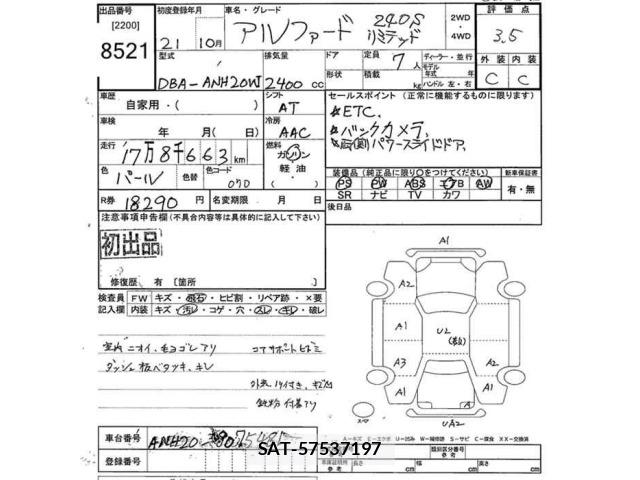 出品番号 初度登録年月 車名・グレード 2WD・4WD 評価点
[2200] 8521 21 10月 アルファード 240S リミテッド 3.5
型式 排気量 ドア 定員 ディーラー・並行 外装 内装
DBA-ANH20W 2400cc 形状 積載 7人 kg モデル年式 年式 ハンドル 左・右 C C
車歴 シフト セールスポイント(正常に機能するものに限ります)
自家用・( ) AT ★ETC.
車検 冷房 ★バックカメラ、
年 月( 日) AAC パワースライドドア、
走行 燃料
17万8千663km ガソリン
色 色替 色コード 軽油・
パール 070 ( )
装備品(純正品に限り○をつけてください) 新車保証書
PS PW ABS エアB AW 有・無
SR ナビ TV カワ
R券 18290円 名変期限 月 日 後日品
注意事項申告欄(不具合内容等は具体的に記入して下さい)
初出品
修復歴 有 [箇所 ]
検査員記入欄 FW キズ・飛石・ヒビ割・リペア跡・×要
内装 キズ・汚レ・コゲ・穴・スレ・キレ・破レ
室内ニオイ、毛ヨゴレアリ コアサポートヒズミ
ダッシュ板ベタツキ、キレ
鉄粉付着アリ
A1
A2
A1 U2
A3 A2
A1 A1
A
UA2
スペア
車台番号 ANH20
登録番号
SAT-57537197
A-キズ E-エクボ U-凹み W-補修跡 S-サビ C-腐食 XX-交換済
類別区分番号
参考 長さ cm 幅 cm 高さ cm